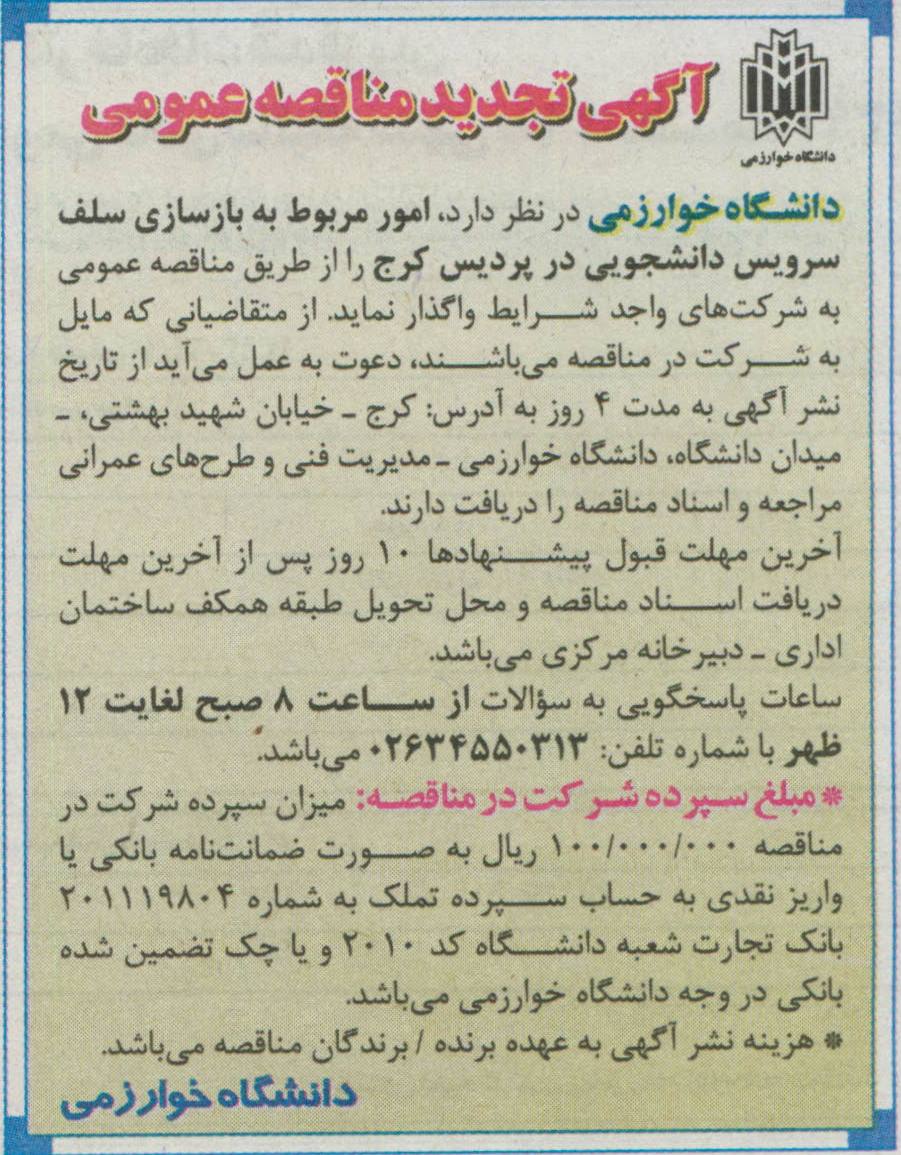 دانشگاه خوارزمی
آگهی تجدید مناقصه عمومی
دانشگاه خوارزمی در نظر دارد، امور مربوط به بازسازی سلف
سرویس دانشجویی در پردیس کرج را از طریق مناقصه عمومی
به شرکت‌های واجد شرایط واگذار نماید. از متقاضیانی که مایل
به شرکت در مناقصه می‌باشند، دعوت به عمل می‌آید از تاریخ
نشر آگهی به مدت ۴ روز به آدرس: کرج ـ خیابان شهید بهشتی، ـ
میدان دانشگاه، دانشگاه خوارزمی ـ مدیریت فنی و طرح‌های عمرانی
مراجعه و اسناد مناقصه را دریافت دارند.
آخرین مهلت قبول پیشنهادها ۱۰ روز پس از آخرین مهلت
دریافت اسناد مناقصه و محل تحویل طبقه همکف ساختمان
اداری ـ دبیرخانه مرکزی می‌باشد.
ساعات پاسخگویی به سؤالات از ساعت ۸ صبح لغایت ۱۲
ظهر با شماره تلفن: ۰۲۶۳۴۵۵۰۳۱۳ می‌باشد.
* مبلغ سپرده شرکت در مناقصه: میزان سپرده شرکت در
مناقصه ۱۰۰/۰۰۰/۰۰۰ ریال به صورت ضمانت‌نامه بانکی یا
واریز نقدی به حساب سپرده تملک به شماره ۲۰۱۱۱۹۸۰۴
بانک تجارت شعبه دانشگاه کد ۲۰۱۰ و یا چک تضمین شده
بانکی در وجه دانشگاه خوارزمی می‌باشد.
* هزینه نشر آگهی به عهده برنده / برندگان مناقصه می‌باشد.
دانشگاه خوارزمی